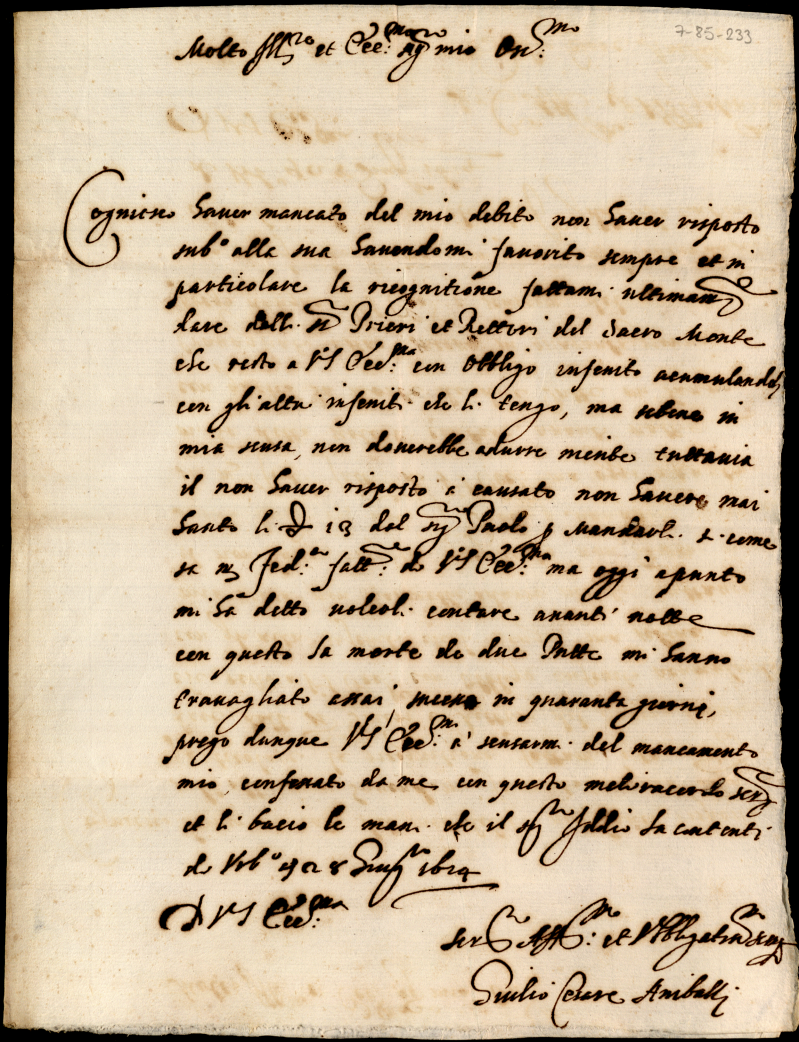 7-85-233
Molto Ill.re et Ecc.mo Sig.r mio Oss.mo
Cognioscо haver mancato del mio debito non haver risposto
sub.o alla sua havendomi favorito sempre et in
particolare la ricognitione fattami ultimam.te
dare dalli SS.ri Prieri et Rettori del Sacro Monte
che resto a V.S. Ecc.ma con obbligo infenito acumulandoli
con gli altri infeniti che li tengo, ma sebene in
mia scusa, non doverebbe adurre meribe tuttavia
il non haver risposto è causato non havere mai
hauto li 13 dal Sig.re Paolo Mandarli si come
sa Fed.co fatt.re de V.S. Ecc.ma ma oggi apunto
mi ha detto voleoli contare avanti notte
con questo la morte de due Putte mi hanno
travagliato assai, in quaranta giorni,
prego dunque V.S. Ecc.ma a scusarmi del mancamento
mio, confessato da me, con questo meli racordo ser.re
et li bacio le mani che il Sig.re Iddio la contenti
de Urb.o q 28 Giug.o 1614
D V.S. Ecc.ma
Ser.re Aff.mo et Obbligatis.mo sempre
Giulio Cesare Aniballi